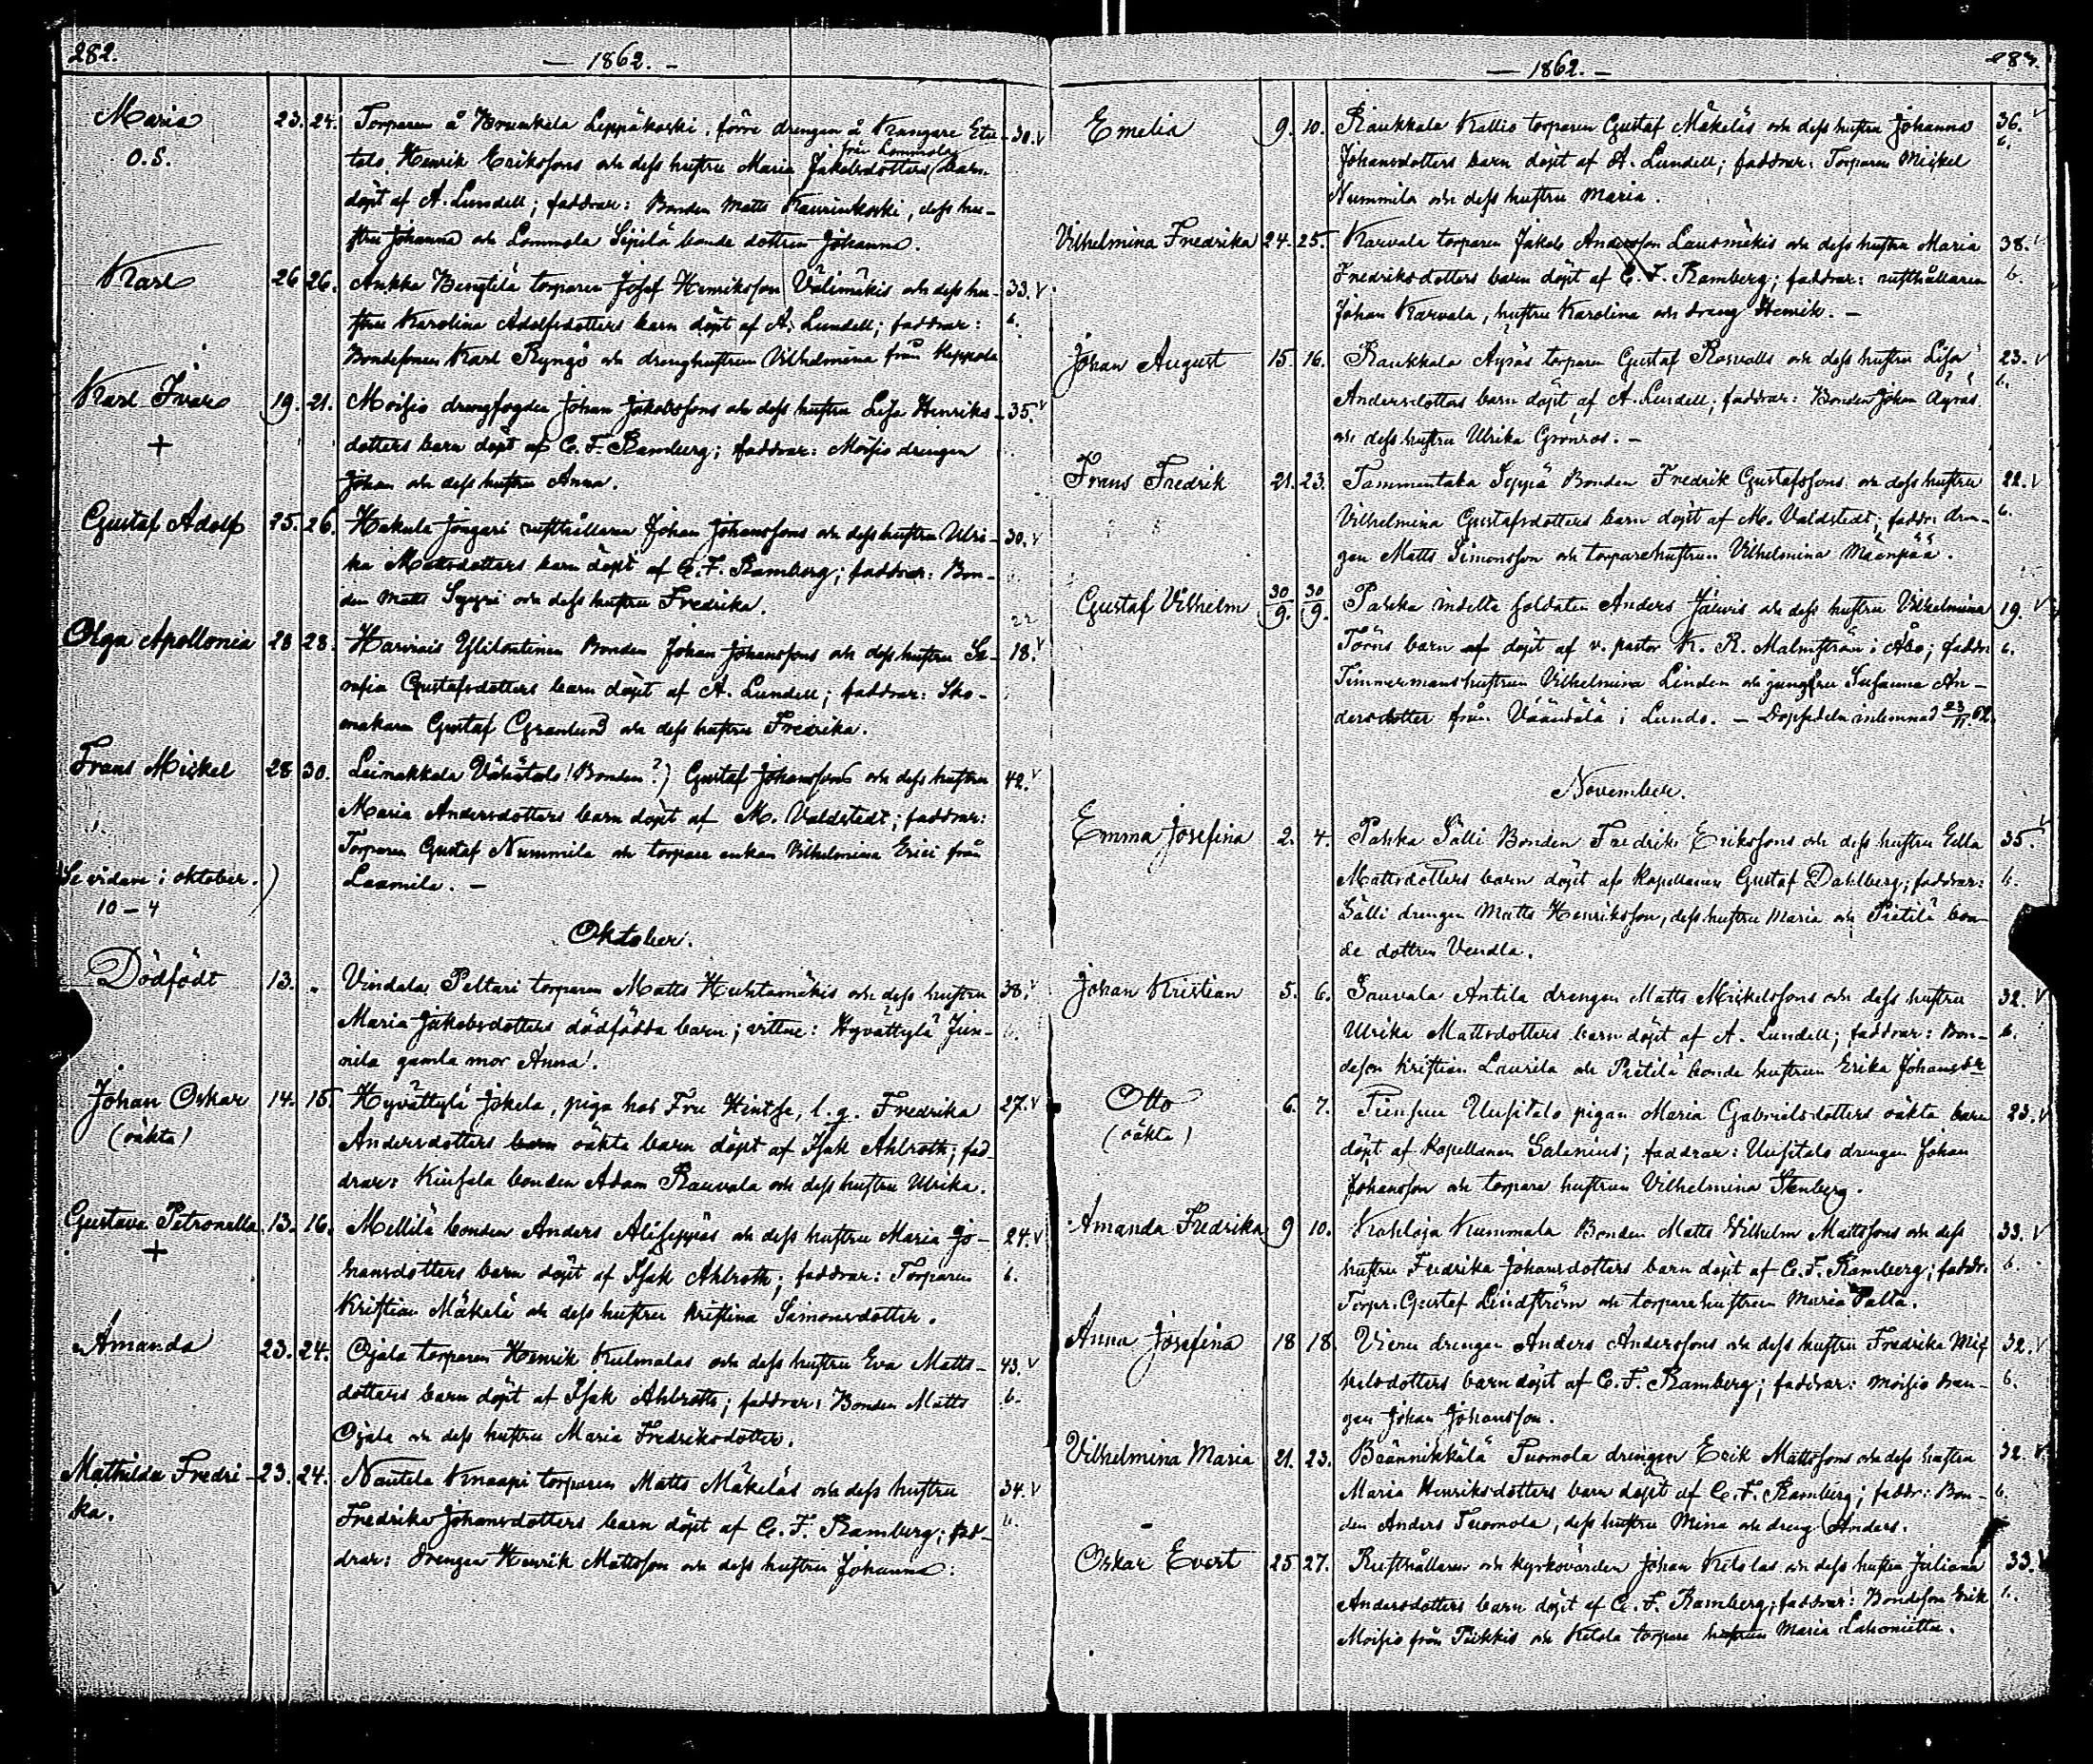 282.
— 1862. —
Maria 23. 24. Torparen å Hrunkala Leppäkoski, förre drengen å Kangare Eta- 30. v
O.S. talo Henrik Eriksons och dess hustru Maria Jakobsdotters (från Lommola) barn
döpt af A. Lundell; faddrar: Bonden Matts Kaurinkoski, dess hu-
stru Johanna och Lommola Sipilä bonde dottren Johanna.
Karl 26 26. Ankka Bengtilä torparen Josef Henriksson Välimäkis och dess hu- 33. v
stru Karolina Adolfsdotters barn döpt af A. Lundell; faddrar: b.
Bondesonen Karl Ryngö och drenghustrun Vilhelmina från Keppola
Karl Ivar 19. 21. Moisio drengfogden Johan Jakobssons och dess hustru Lisa Henriks- 35. v
+ dotters barn döpt af C. F. Ramberg; faddrar: Moisio drengen
Johan och dess hustru Anna.
Gustaf Adolf 25. 26. Hakula Jongari rusthållaren Johan Johanssons och dess hustru Ulri- 30. v
ka Mattsdotters barn döpt af C. F. Ramberg; faddrar: Bon-
den Matts Syyri och dess hustru Fredrika.
22
Olga Apollonia 28 28. Harvais Ylilontinen Bonden Johan Johanssons och dess hustru Se- 18. v
rafia Gustafsdotters barn döpt af A. Lundell; faddrar: Sko-
makaren Gustaf Granlund och dess hustru Fredrika.
Frans Mickel 28 30. Leinakkala Vähätalo (Bonden?) Gustaf Johanssons och dess hustru 42. v
Maria Andersdotters barn döpt af M. Valdstedt; faddrar:
Torparen Gustaf Nummila och torpare enkan Vilhelmina Erici från
Se vidare i oktober.) Laamila. —
10 – 4
Oktober.
Dödfödt 13. „ Vindala Peltari torparen Matts Huhtamäkis och dess hustru 38. v
Maria Jakobsdotters dödfödda barn; vittne: Hyvättylä Jun- b.
nila gamla mor Anna.
Johan Oskar 14. 15. Hyvättylä Jokela, piga hos Fru Hintze, l. g. Fredrika 27. v
(oäkta) Andersdotters barn oäkta barn döpt af Isak Ahlroth; fad-
drar: Kinsala bonden Adam Rauvala och dess hustru Ulrika.
Gustava Petronella 13. 16. Mellilä bonden Anders Aliseppäs och dess hustru Maria Jo- 24. v
+ hansdotters barn döpt af Isak Ahlroth; faddrar: Torparen b.
Kristian Mäkelä och dess hustru Kristina Simonsdotter.
Amanda 23. 24. Ojala torparen Henrik Kulmalas och dess hustru Eva Matts- 43. v
dotters barn döpt af Isak Ahlroth; faddrar: Bonden Matts b.
Ojala och dess hustru Maria Fredriksdotter.
Mathilda Fredri- 23. 24. Nautela Knaapi torparen Matts Mäkeläs och dess hustru 34. v
ka. Fredrika Johansdotters barn döpt af C. F. Ramberg; fad- b.
drar: drengen Henrik Mattsson och dess hustru Johanna.
— 1862. —
283.
Emelia 9. 10. Raukkala Kallio torparen Gustaf Mäkeläs och dess hustru Johanna 36. v
Johansdotters barn döpt af A. Lundell; faddrar: Torparen Mickel b.
Nummila och dess hustru Maria.
Vilhelmina Fredrika 24. 25. Karvala torparen Jakob Andersson Lausmäkis och dess hustru Maria 38. v
Fredriksdotters barn döpt af C. F. Ramberg; faddrar: rusthållaren b.
Johan Karvala, hustru Karolina och dreng Henrik. —
Johan August 15. 16. Raukkala Äyräs torparen Gustaf Rosvalls och dess hustru Lisa 23. v
Andersdotters barn döpt af A. Lundell; faddrar: Bonden Johan Äyräs b.
och dess hustru Ulrika Grönros. —
Frans Fredrik 21. 23. Tammentaka Seppä Bonden Fredrik Gustafssons och dess hustru 22. v
Vilhelmina Gustafsdotters barn döpt af M. Valdstedt; faddr: dren- b.
gen Matts Simonsson och torparehustrun Vilhelmina Mäenpää.
Gustaf Vilhelm 30/9. 30/9. Pahka indelta soldaten Anders Jäwis och dess hustru Vilhelmina 19. v
Törns barn af döpt af v. pastor K. R. Malmström i Åbo; faddr: b.
Timmermanshustrun Vilhelmina Linden och jungfru Susanna An-
dersdotter från Väänälä i Lundo. — Dopsedeln inlemnad 23/11. 62.
November.
Emma Josefina 2. 4. Pahka Sälli Bonden Fredrik Erikssons och dess hustru Ella 35. v
Mattsdotters barn döpt af Kapellanen Gustaf Dahlberg; faddrar: b.
Sälli drengen Matts Henriksson, dess hustru Maria och Pietilä bon-
de dottren Vendla.
Johan Kristian 5. 6. Sauvala Antila drengen Matts Mickelssons och dess hustru 32. v
Ulrika Mattsdotters barn döpt af A. Lundell; faddrar: Bon- b.
deson Kristian Laurila och Pietilä bonde hustrun Erika Johansdr
Otto 6. 7. Uusitalo pigan Maria Gabrielsdotters oäkta barn 23. v
(oäkta) döpt af Kapellanen Salenius; faddrar: Uusitalo drengen Johan
Johansson och torpare hustrun Vilhelmina Stenberg.
Amanda Fredrika 9 10. Kahloja Kummala Bonden Matts Vilhelm Mattssons och dess 33. v
hustru Fredrika Johansdotters barn döpt af C. F. Ramberg; faddr. b.
Torpr. Gustaf Lindström och torparehustrun Maria Palta.
Anna Josefina 18 18. Viemu drengen Anders Anderssons och dess hustru Fredrika Mic 32. v
kelsdotters barn döpt af C. F. Ramberg; faddrar: Moisio dren- b.
gen Johan Johansson.
Vilhelmina Maria 21. 23. Brännikkälä Tuomola drengen Erik Mattssons och dess hustru 32. v
Maria Henriksdotters barn döpt af C. F. Ramberg; faddr: Bon- b.
den Anders Tuomola, dess hustru Mina och dreng Anders.
Oskar Evert 25 27. Rusthållaren och kyrkovärden Johan Ketolas och dess hustru Juliana 33. v
Andersdotters barn döpt af C. F. Ramberg; faddrar: Bondeson Erik b.
Moisio från Piikkis och Ketola torpare hustrun Maria Lahoniittu.